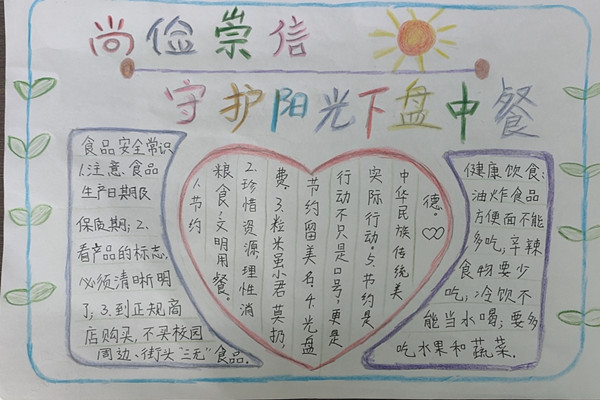 尚俭崇信
守护阳光下盘中餐
食品安全常识
1.注意食品
生产日期及
保质期;2、
看产品的标志
必须清晰明
了;3.到正规商
店购买,不买校园
周边、街头"三无"食品.
1.节约
粮食;文明用餐。
2.珍惜资源,理性消
费。3.粒米虽小君莫扔,
节约留美名.4.光盘
行动不只是口号,更是
实际行动.5.节约是
中华民族传统美
德.
健康饮食:
油炸食品
方便面不能
多吃,辛辣
食物要少
吃,冷饮不
能当水喝;要多
吃水果和蔬菜.